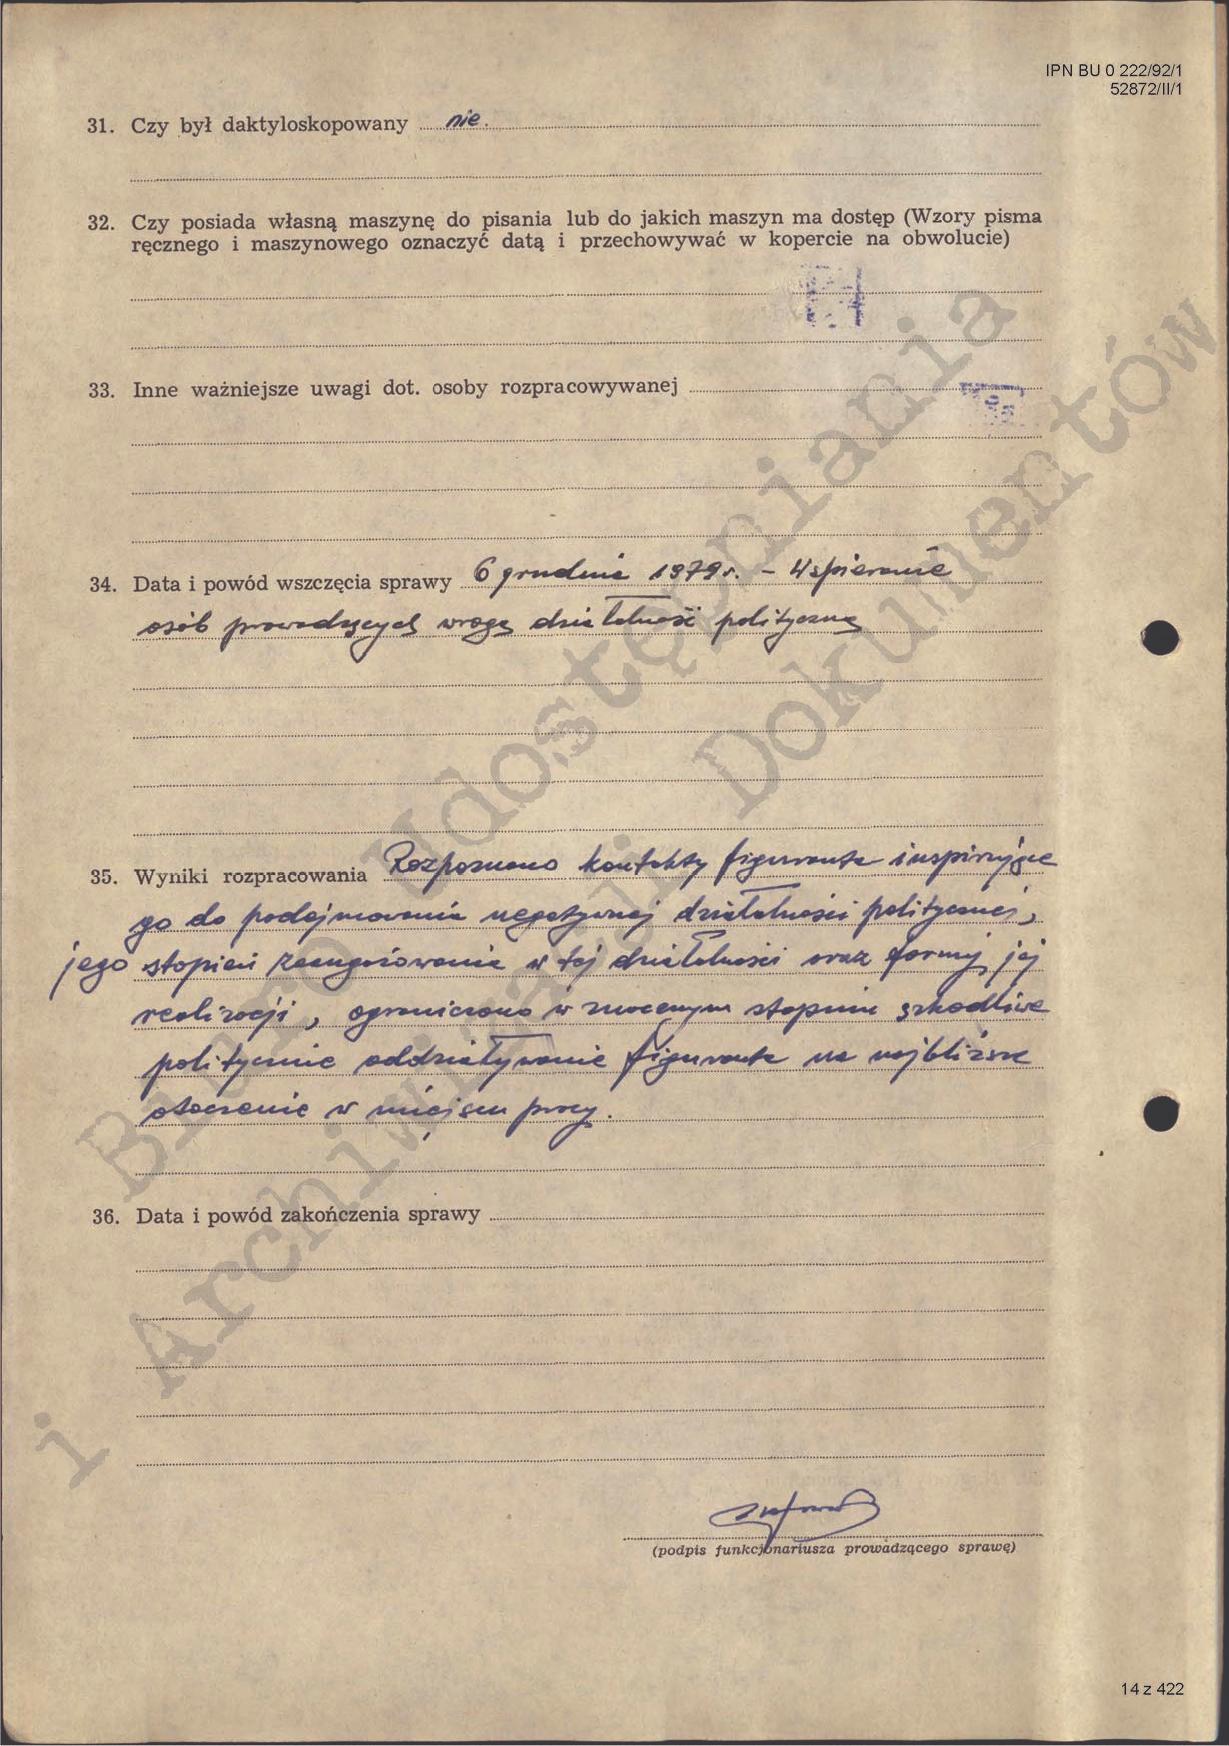 IPN BU 0 222/92/1
52872/II/1
31. Czy był daktyloskopowany nie.
32. Czy posiada własną maszynę do pisania lub do jakich maszyn ma dostęp (Wzory pisma
ręcznego i maszynowego oznaczyć datą i przechowywać w kopercie na obwolucie)
33. Inne ważniejsze uwagi dot. osoby rozpracowywanej
34. Data i powód wszczęcia sprawy 6 grudnia 1979 r. - Wspieranie
osób prowadzących wrogą działalność polityczną
35. Wyniki rozpracowania Rozpoznano kontakty figuranta inspirujące
go do podejmowania negatywnej działalności politycznej,
jego stopień zaangażowania w tej działalności oraz formy jej
realizacji, ograniczono w znacznym stopniu szkodliwe
politycznie oddziaływanie figuranta na najbliższe
otoczenie w miejscu pracy.
36. Data i powód zakończenia sprawy
(podpis funkcjonariusza prowadzącego sprawę)
Biuro Udostępniania
i Archiwizacji Dokumentów
14 z 422